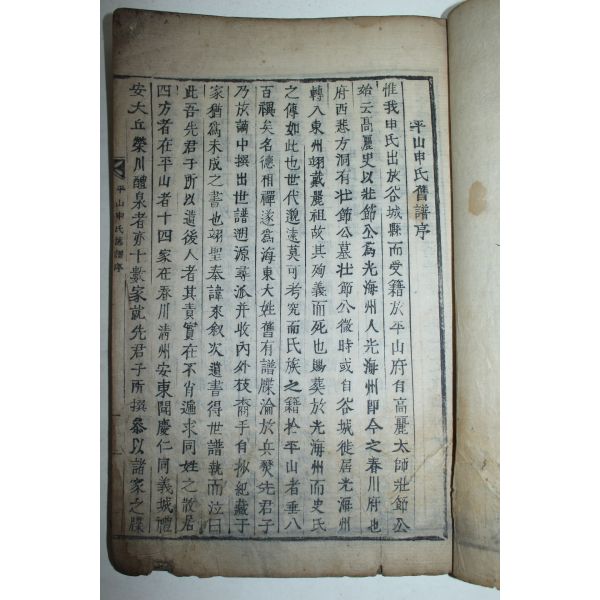 平山申氏舊譜序
惟我申氏出於谷城縣而受籍於平山府自高麗太師壯節公
始云高麗史以壯節公爲光海州人光海州即今之春川府也
府西悲方洞有壯節公墓壯節公微時或自谷城徙居光海州
轉入東州翊戴麗祖故其殉義而死也賜葬於光海州而史氏
之傳如此也世代邈遠莫可考究而氏族之籍於平山者垂八
百禩矣名德相禪遂爲海東大姓舊有譜牒淪於兵燹先君子
乃於譾中撰出世譜遡源尋派并收內外枝裔手自抄紀藏于
家猶爲未成之書也翊聖奉諱來叙次遺書得世譜執而泣曰
此吾先君子所以遺後人者其責實在不肖遍求同姓之散居
四方者在平山者十四家在春川淸州安東開慶仁同義城醴
安大丘榮川醴泉者亦十數家就先君子所撰叅以諸家之牒
平山申氏舊譜序